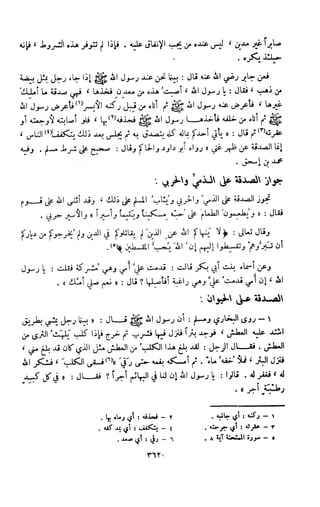 صابراً غير مدين ، ليس عنده من يجب الإنفاق عليه . فإذا لم تتوفر هذه الشروط ، فإنه
حينئذ يكره .
فعن جابر رضي الله عنه قال : بينا نحن عند رسول الله ﷺ إذا جاء رجل بمثل بيضة
من ذهب ، فقال : يا رسول الله ، أصبت هذه من معدن فخذها ، فهي صدقة ما أملك
غيرها ، فأعرض عنه رسول الله ﷺ ثم أتاه من قبل ركنه الأيسر(١) فأعرض رسول الله
ﷺ ثم أتاه من خلفه فأخذها رسول الله ﷺ فحذفه(٢) بها ، فلو أصابته لأوجعته أو
عقرته(٣) ثم قال : « يأتي أحدكم بماله كله يتصدق به ثم يجلس بعد ذلك يتكفف(٤) الناس ،
إنما الصدقة عن ظهر غنى » رواه أبو داود والحاكم وقال : صحيح على شرط مسلم . وفيه
محمد بن إسحق .
جواز الصدقة على الذمي والحربي :
تجوز الصدقة على الذمي والحربي ويثاب المسلم على ذلك ، وقد أثنى الله على قوم
فقال : « ويطعمون الطعام على حبه مسكيناً ويتيماً وأسيراً » والأسير حربي .
وقال تعالى : « لا ينهاكم الله عن الذين لم يقاتلوكم في الدين ولم يخرجوكم من دياركم
أن تبروهم وتقسطوا إليهم إن الله يحب المقسطين »(٥) .
وعن أسماء بنت أبي بكر قالت : قدمت علي أمي وهي مشركة فقلت : يا رسول
الله ، إن أمي قدمت علي وهي راغبة أفأصلها ؟ قال : « نعم صلي أمك » .
الصدقة على الحيوان :
١ - روى البخاري ومسلم : أن رسول الله ﷺ قال : « بينما رجل يمشي بطريق
اشتد عليه العطش ، فوجد بئراً فنزل فيها فشرب ثم خرج فإذا كلب يلهث الثرى من
العطش . فقال الرجل : لقد بلغ هذا الكلب من العطش مثل الذي كان قد بلغ مني ،
فنزل البئر ، فملأ خفه ماءً . ثم أمسكه بفمه حتى رقي(٦) فسقى الكلب ، فشكر الله
له ، فغفر له . قالوا : يا رسول الله إن لنا في البهائم أجراً ؟ فقال : « في كل كبد
رطبة أجر » .
١ - ركنه : أي جانبه .
٢ - فحذفه : أي رماه بها .
٣ - عقرته : أي جرحته .
٤ - يتكفف : أي يمد كفه .
٥ - سورة الممتحنة آية ٨ .
٦ - رقي : أي صعد .
٣٦٢